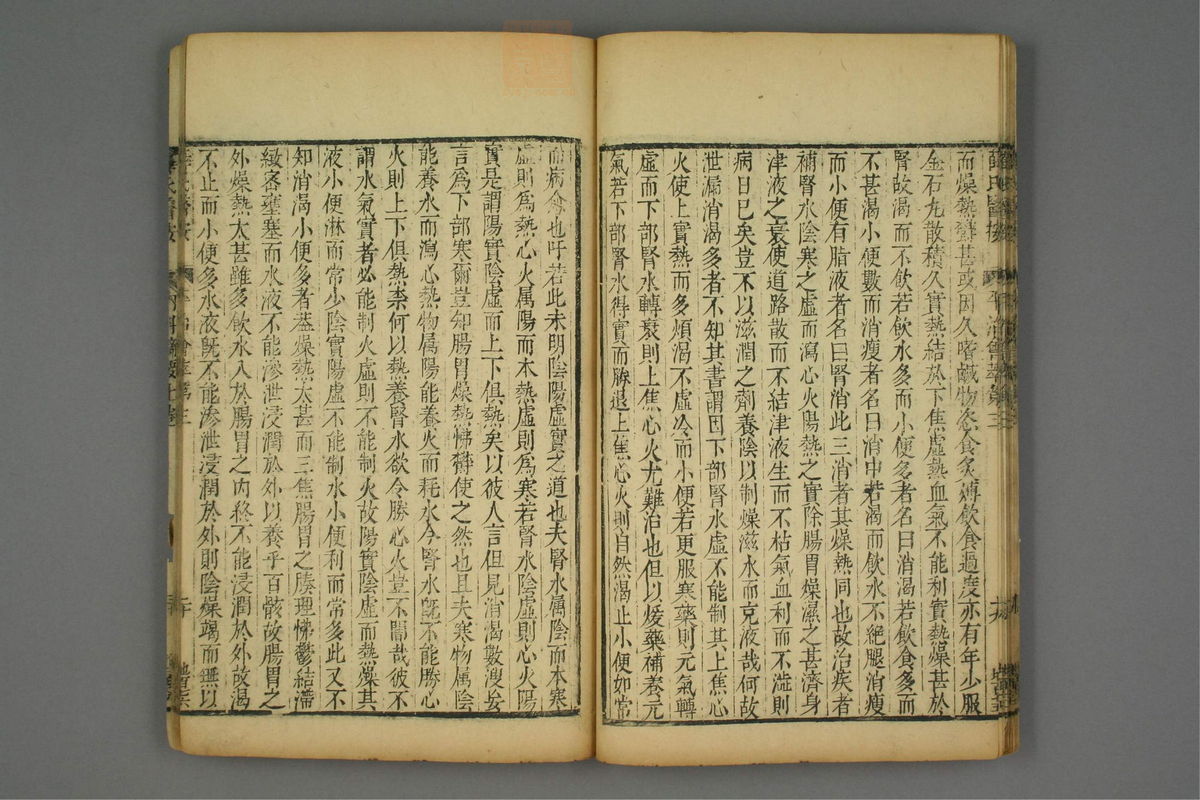 薛氏醫按
而燥熱鬱甚或因久嗜鹹物恣食炙煿飲食過度亦有年少服
金石丸散積久實熱結於下焦虛熱血氣不能制實熱燥甚於
腎故渴而不飲若飲水多而小便多者名曰消渴若飲食多而
不甚渴小便數而消瘦者名曰消中若渴而飲水不絕腿消瘦
而小便有脂液者名曰腎消此三消者其燥熱同也故治疾者
補腎水陰寒之虛而瀉心火陽熱之實除腸胃燥濕之甚濟身
津液之衰使道路散而不結津液生而不枯氣血利而不澁則
病日已矣豈不以滋潤之劑養陰以制燥滋水而充液哉何故
泄漏消渴多者不知其書謂因下部腎水虛不能制其上焦心
火使上實熱而多煩渴不虛冷而小便若更服寒藥則元氣轉
虛而下部腎水轉衰則上焦心火尤難治也但以煖藥補養元
氣若下部腎水得實而勝退上焦心火則自然渴止小便如常
而病愈也吁若此未明陰陽虛實之道也夫腎水属陰而本寒
虛則為熱心火属陽而本熱虛則為寒若腎水陰虛則心火陽
實是謂陽實陰虛而上下俱熱矣以彼人言但見消渴數溲妄
言為下部寒爾豈知腸胃燥熱怫鬱使之然也且夫寒物属陰
能養水而瀉心熱物属陽能養火而耗水今腎水既不能勝心
火則上下俱熱柰何以熱養腎水欲令勝心火豈不闇哉彼不
謂水氣實者必能制火虛則不能制火故陽實陰虛而熱燥其
液小便淋而常少陰實陽虛不能制水小便利而常多此又不
知消渴小便多者葢燥熱太甚而三焦腸胃之腠理怫鬱結滯
緻密壅塞而水液不能滲泄浸潤於外以養乎百骸故腸胃之
外燥熱太甚雖多飲水入於腸胃之內終不能浸潤於外故渴
不止而小便多水液旣不能滲泄浸潤於外則陰燥竭而無以